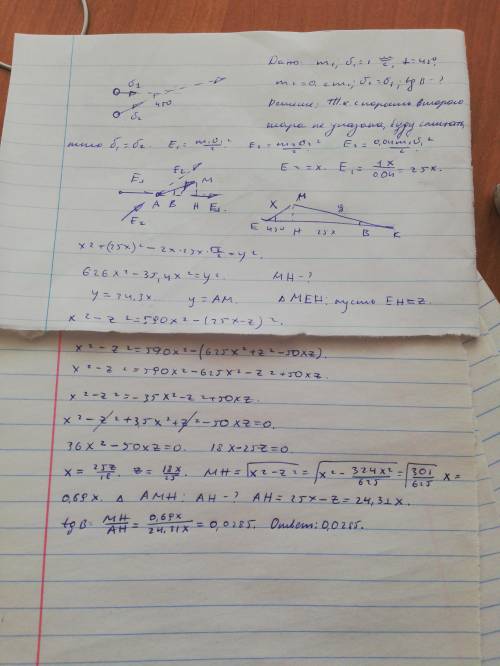 Дано: m₁, υ₁=1 м/с, α=45°
m₂=0.2m₁; υ₂=υ₁; tg B-?
υ₁
45°
υ₂
Решение: Т.к. скорость второго
шара не указана, буду считать,
что υ₁=υ₂. E₁=m₁υ₁²/2 E₂=m₂υ₂²/2 E₂=0,04m₁υ₁²
E₂=x. E₁=1x/0.04=25x.
E₁ E₂ M
A B H E₁
E₂
M
x y
E 45° H 25x B K
x²+(25x)²-2x·25x·√2/2=y².
626x²-35,4x²=y². MH-?
y=24.3x. y=AM. Δ MEH: пусть EH=z.
x²-z²=590x²-(25x-z)².
x²-z²=590x²-(625x²+z²-50xz).
x²-z²=590x²-625x²-z²+50xz.
x²-z²=-35x²-z²+50xz.
x²-z²+35x²+z²-50xz=0.
36x²-50xz=0. 18x-25z=0.
x=25z/18. z=18x/25. MH=√x²-z²=√x²-324x²/625=√301/625 x=
0,69x. Δ AMH: AH-? AH=25x-z=24,31x.
tg B=MH/AH=0,69x/24,31x=0,0285. Ответ: 0,0285.